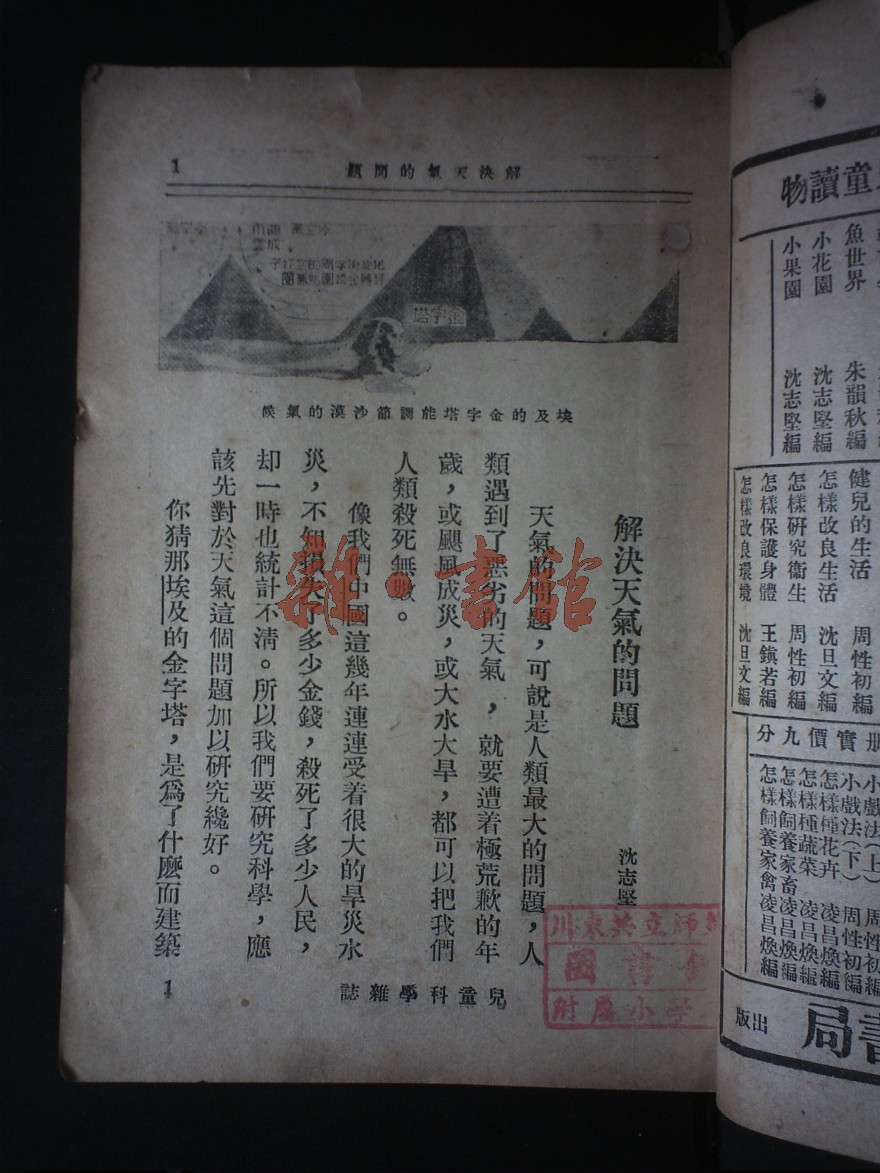 解決天氣的問題
1
金字塔
埃及的金字塔能調節沙漠的氣候
解決天氣的問題
沈志堅
天氣的問題,可說是人類最大的問題,人
類遇到了惡劣的天氣,就要遭着極荒歉的年
歲,或颶風成災,或大水大旱,都可以把我們
人類殺死無數。
像我們中國這幾年連連受着很大的旱災水
災,不知損失了多少金錢,殺死了多少人民,
却一時也統計不清。所以我們要研究科學,應
該先對於天氣這個問題加以研究纔好。
你猜那埃及的金字塔,是爲了什麽而建築
兒童科學雜誌
1
川東共立師
圖書館
附屬小學
雜·書館
童讀物
魚世界 朱韻秋編
小花園 沈志堅編
小果園 沈志堅編
健兒的生活 周性初編
怎樣改良生活 沈旦文編
怎樣研究衞生 周性初編
怎樣保護身體 王鎭若編
怎樣改良環境 沈旦文編
册實價九分
小戲法(上) 周性初編
小戲法(下) 周性初編
怎樣種花卉 凌昌煥編
怎樣種蔬菜 凌昌煥編
怎樣飼養家畜 凌昌煥編
怎樣飼養家禽 凌昌煥編
書局
出版